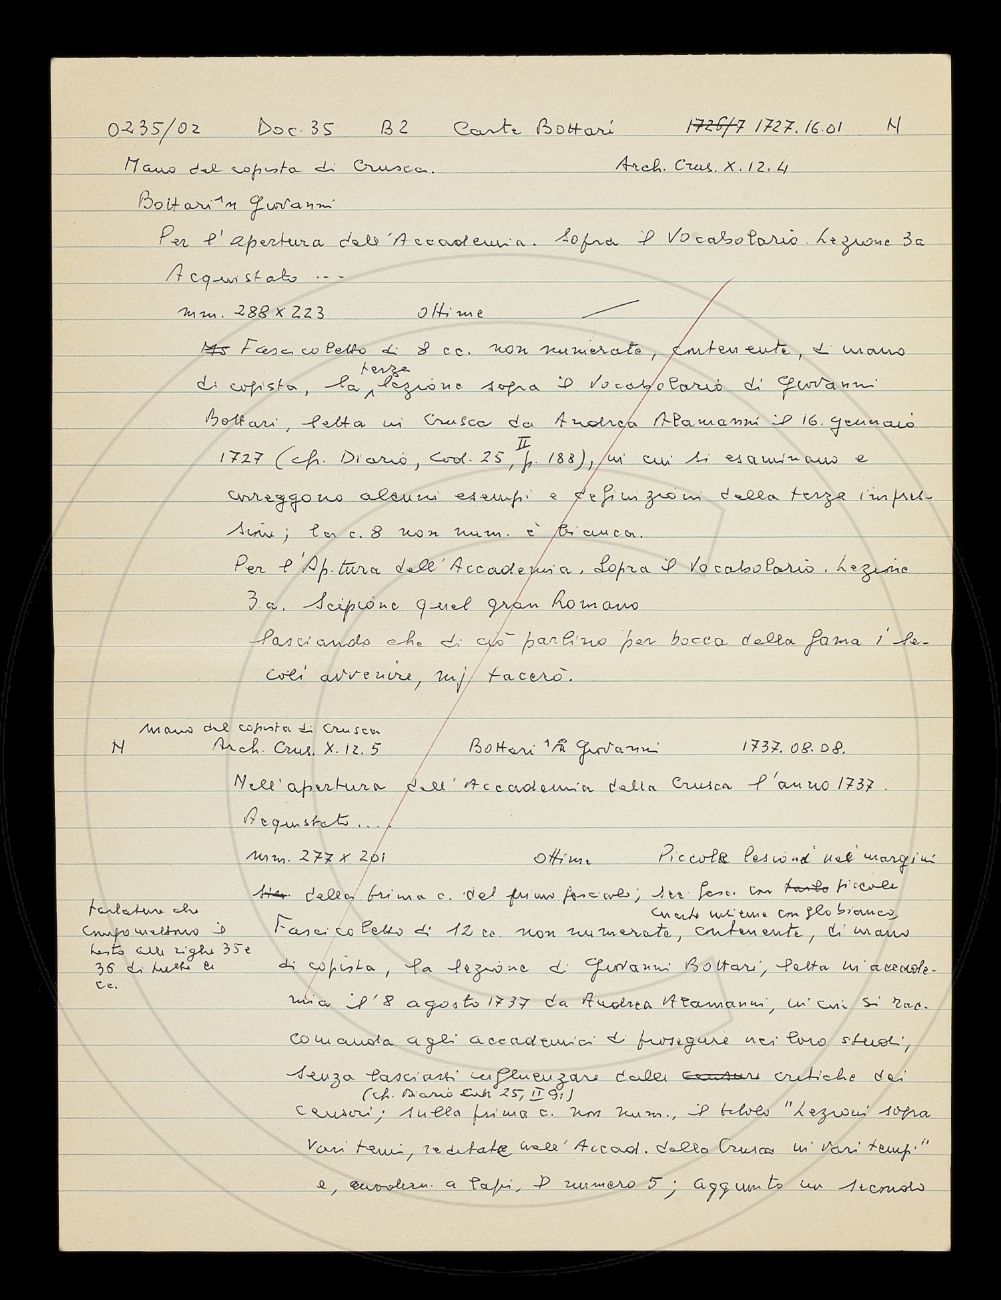 0235/02 Doc. 35 B2 Carte Bottari 1726/7 1727.16.01 N
Mano del copista di Crusca. Arch. Crus. X.12.4
Bottari Giovanni
Per l'apertura dell'Accademia. Sopra il Vocabolario. Lezione 3a
Acquistato ...
mm. 288 x 223 ottime
Ms Fascicoletto di 8 cc. non numerate, contenente, di mano
terza
di copista, la lezione sopra il Vocabolario di Giovanni
Bottari, letta in Crusca da Andrea Alamanni il 16. gennaio
1727 (cfr. Diario, Cod. 25, II p. 188), in cui si esaminano e
correggono alcuni esempi e definizioni della terza impres-
sione; la c. 8 non num. è bianca.
Per l'Ap.tura dell'Accademia. Sopra il Vocabolario. Lezione
3a. Scipione quel gran Romano
lasciando che di ciò parlino per bocca della fama i se-
coli avvenire, mi tacerò.
Mano del copista di Crusca
N Arch. Crus. X.12.5 Bottari Giovanni 1737.08.08.
Nell'apertura dell'Accademia della Crusca l'anno 1737.
Acquistato....
mm. 277 x 201 ottime Piccole lesioni nei margini
della prima c. del primo fascicolo; con tarlo piccole
tarlature che
compromettono il
testo alle righe 35 e
36 di tutte le
cc.
Fascicoletto di 12 cc. non numerate, contenente, di mano
di copista, la lezione di Giovanni Bottari, letta in accade-
mia il 8 agosto 1737 da Andrea Alamanni, in cui si rac-
comanda agli accademici di proseguire nei loro studi,
senza lasciarsi influenzare dalle censure critiche dei
(cfr. Diario Cod. 25, II 91)
censori; sulla prima c. non num., il titolo "Lezioni sopra
Vari temi, recitate nell'Accad. della Crusca in Vari tempi"
e, a lapis, il numero 5; aggiunto un secondo